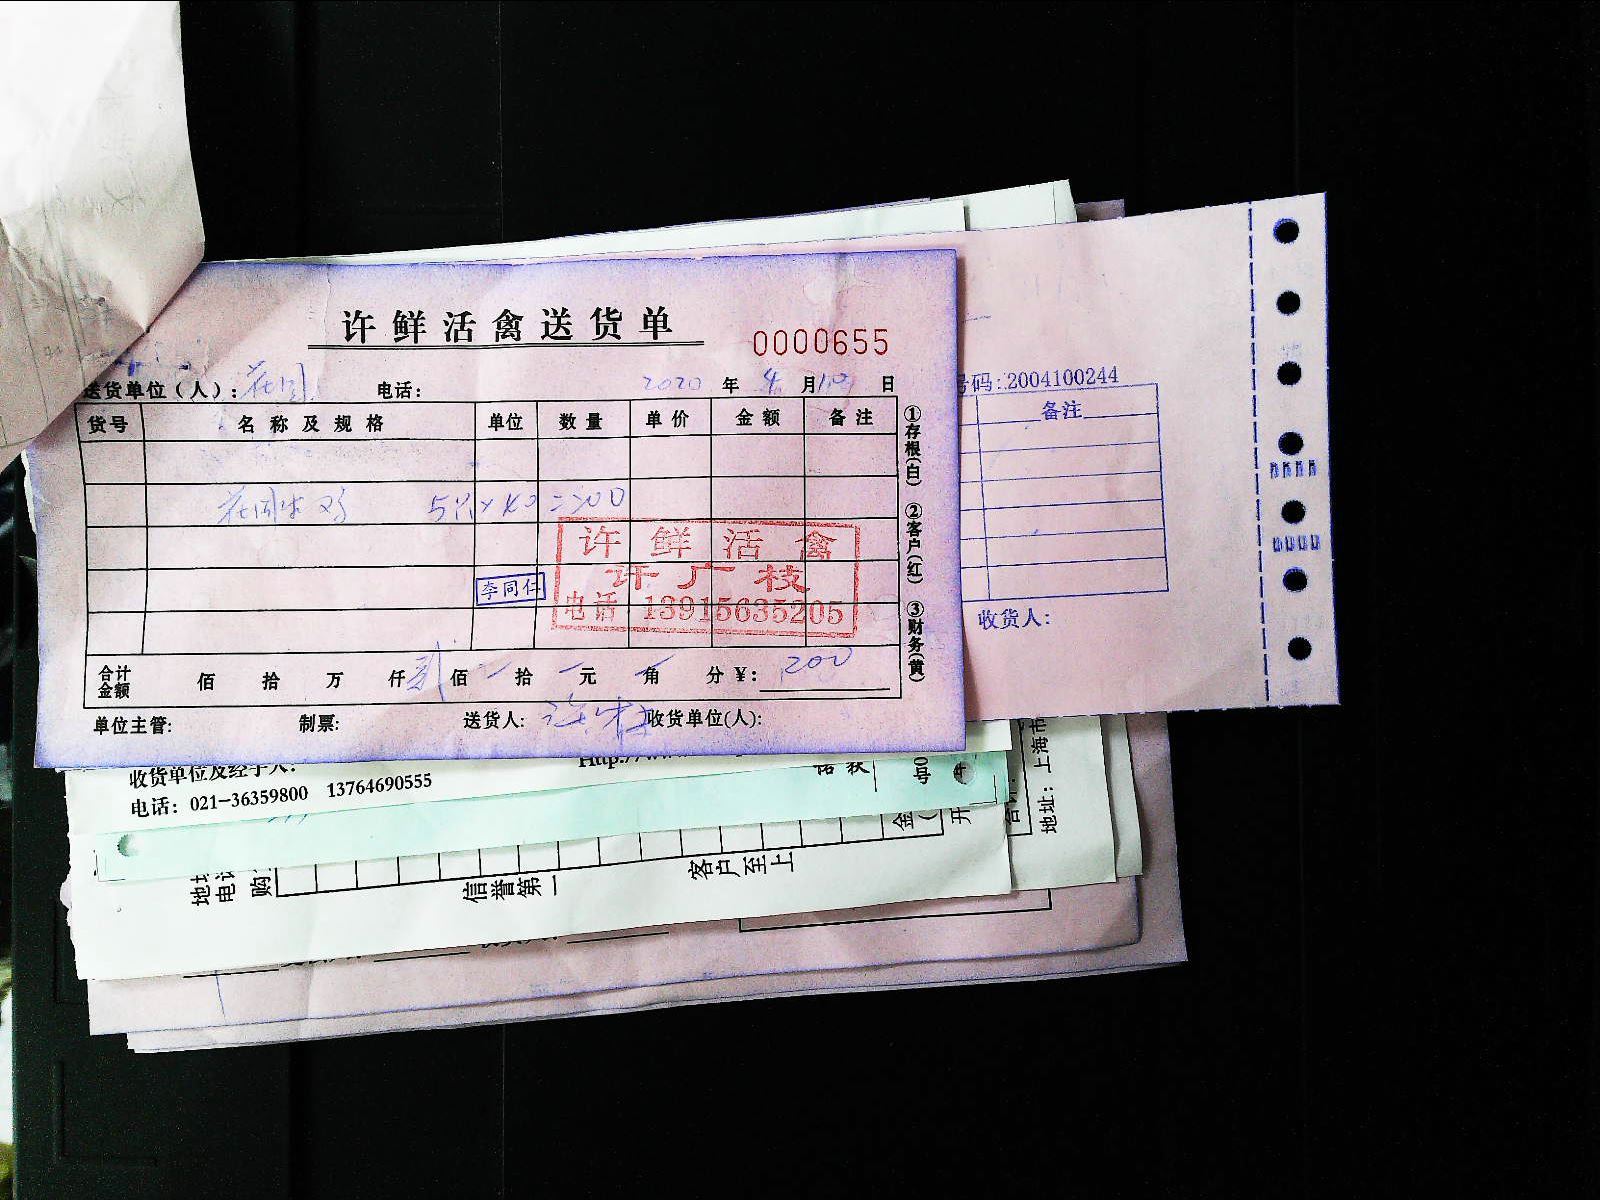 许鲜活禽送货单
0000655
送货单位（人）：花园 电话： 2020 年 4 月 日
货号 名称及规格 单位 数量 单价 金额 备注
5只×40=200
许鲜活禽
许广枝
电话 13915635205
李同仁
合计金额 佰 拾 万 仟 贰 佰 拾 元 角 分 ¥：200
单位主管： 制票： 送货人： 收货单位(人)：
①存根(白) ②客户(红) ③财务(黄)
号码:2004100244
备注
收货人：
收货单位及经手人：
电话：021-36359800 13764690555
信誉第一
客户至上
地址：上海市